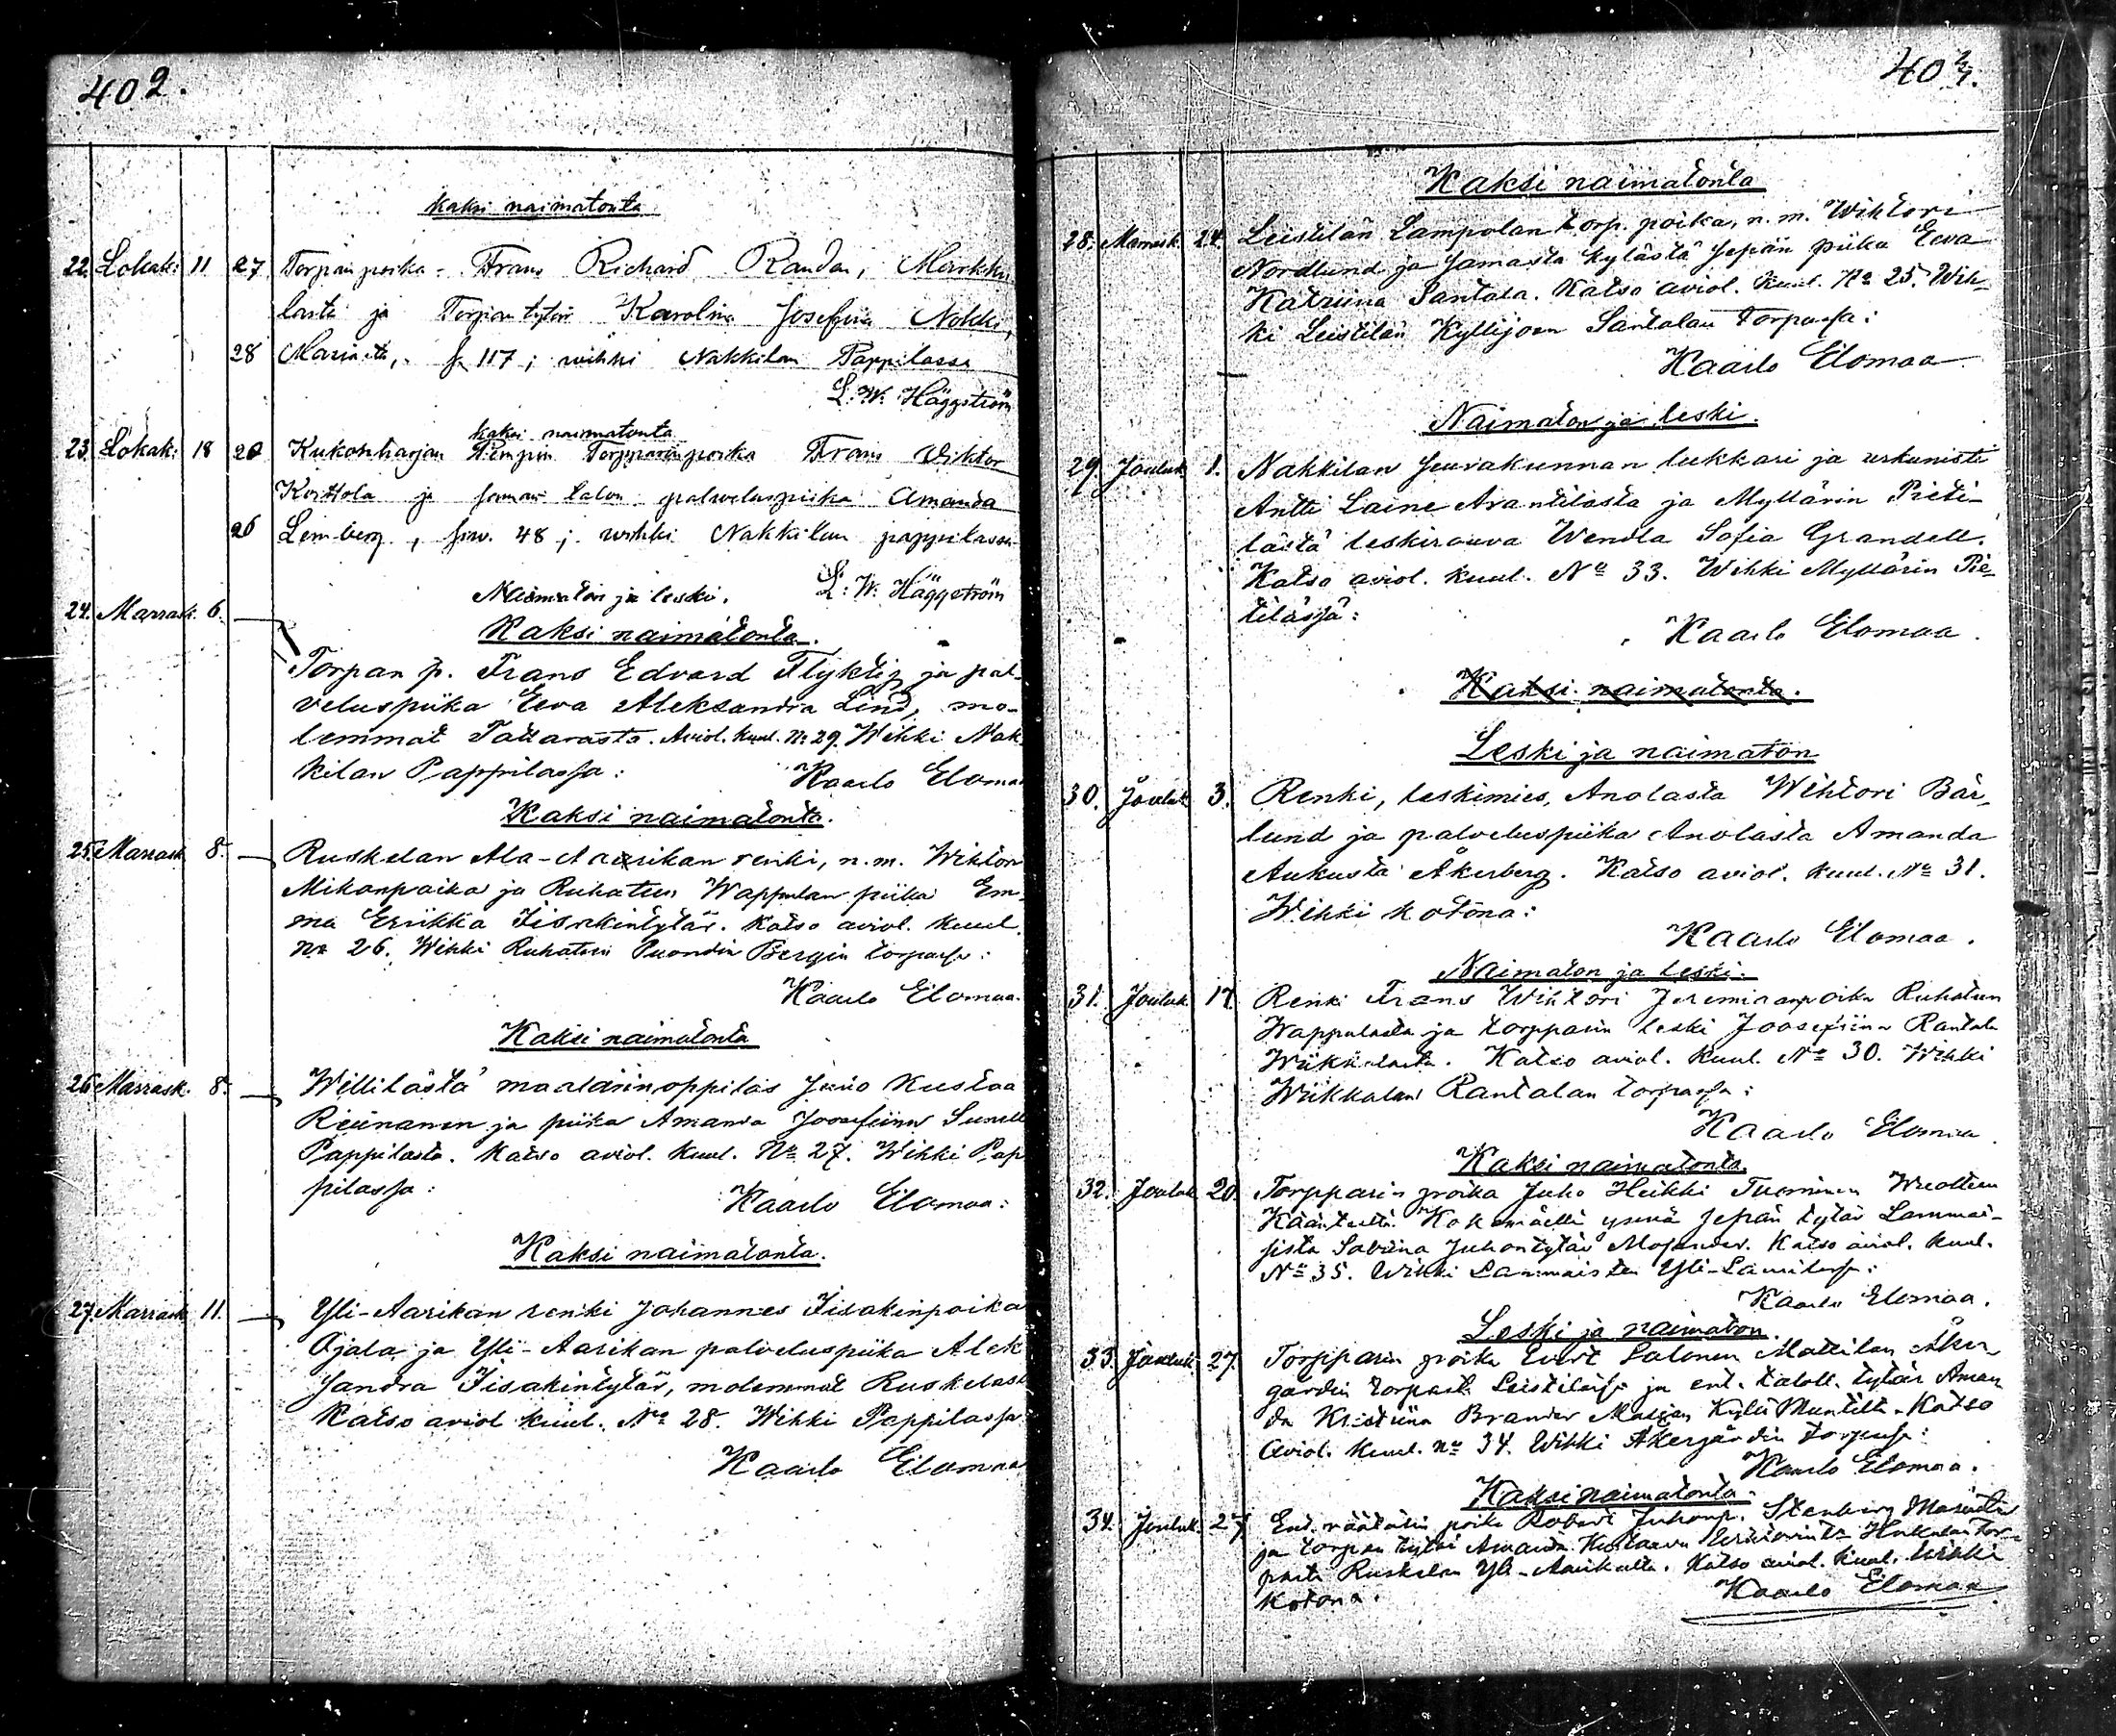 402.
kaksi naimatonta
22. Lokak: 11 27 Torpan poika Frans Richard Randan, Markku
lasta ja Torpantytär Karolina Josefina Nohki,
28 117; wihki Nakkilan Pappilassa
L. W. Häggström
kaksi naimatonta
23. Lokak: 18 20 Kukonharjan Torpparinpoika Frans Viktor
Korttola ja saman talon palveluspiika Amanda
26 Lemberg, siw. 48; wihki Nakkilan pappilassa
L. W. Häggström
Naimaton ja leski.
24. Marrask. 6.
Kaksi naimatonta.
Torpan p. Frans Edvard Flyktig ja pal-
veluspiika Eeva Aleksandra Lind, mo-
lemmat Tattarasta. Aviol. kuul. No 29. Wihki Nak
kilan Pappilassa:
Kaarlo Eloma
Kaksi naimatonta.
25. Marrask. 8. Ruskelan Ala-Aarikan renki, n.m. Wihtori
Mikonpoika ja Ruhatun Wappulan piika Em-
ma Eriikka Iisakintytär. Katso aviol. kuul.
No 26. Wihki Ruhatun Bergin torpassa:
Kaarlo Elomaa.
Kaksi naimatonta
26. Marrask. 8. Willilästä maalarinoppilas Kustaa
ja piika Amanda Joosefiina
Pappilasta. Katso aviol. kuul. No 27. Wihki Pap
pilassa:
Kaarlo Elomaa:
Kaksi naimatonta.
27. Marrask. 11. Yli-Aarikan renki Johannes Iisakinpoika
Ojala ja Yli-Aarikan palveluspiika Alek
sandra Iisakintytär, molemmat Ruskelast
Katso aviol kuul. No 28. Wihki Pappilassa:
Kaarlo Elomaa
Kaksi naimatonta
28. Marrask. 24. Leistilän Lampolan torp. poika, n.m. Wihtori
Nordlund ja samasta kylästä sepän piika Eeva
Katriina Santala. Katso aviol. kuul. No 25. Wih-
ki Leistilän Kyllijoen Santalan torpassa:
Kaarlo Elomaa
Naimaton ja leski.
29. Jouluk. 1. Nakkilan seurakunnan lukkari ja urkunisti
Antti Laine Arantilasta ja Myllärin Pieti-
lästä leskirouva Wendla Sofia Grandell.
Katso aviol. kuul. No 33. Wihki Myllärin Pie-
tilässä:
Kaarlo Elomaa.
Kaksi naimatonta.
Leski ja naimaton
30. Jouluk. 3. Renki, leskimies, Anolasta Wihtori Bär-
lund ja palveluspiika Anolasta Amanda
Aukusta Åkerberg. Katso aviol. kuul. No 31.
Wihki kotona:
Kaarlo Elomaa.
Naimaton ja leski.
31. Jouluk. 17. Renki Frans Wihtori Jeremianpoika Ruhatun
Wappulasta ja torpparin leski Joosefiina Rantala
Wiikkalasta. Katso aviol. kuul. No 30. Wihki
Wiikkalan Rantalan torpassa:
Kaarlo Elomaa.
Kaksi naimatonta.
32. Jouluk. 20. Torpparin poika Juho Heikki Tuominen
Kokemäellä sepän tytär Lammai-
sista Sabiina Juhontytär Katso aviol. kuul.
No 35. Wihki Lammaisten Yli-Laurilassa:
Kaarlo Elomaa.
Leski ja naimaton.
33. Jouluk. 27. Torpparin poika Evert Salonen Mattilan Åker-
gardin torpasta Leistilässä ja ent. taloll. tytär Aman
da Kristiina Brander Katso
Aviol. kuul. No 34. Wihki Åkergårdin torpassa:
Kaarlo Elomaa.
Kaksi naimatonta.
34. Jouluk. 27 Ent. räätälin poika Robert Juhonp. Stenberg
ja torpan tytär Amanda
Ruskelan Yli-Aarikalta. Katso aviol. kuul. Wihki
Kotona.
Kaarlo Elomaa